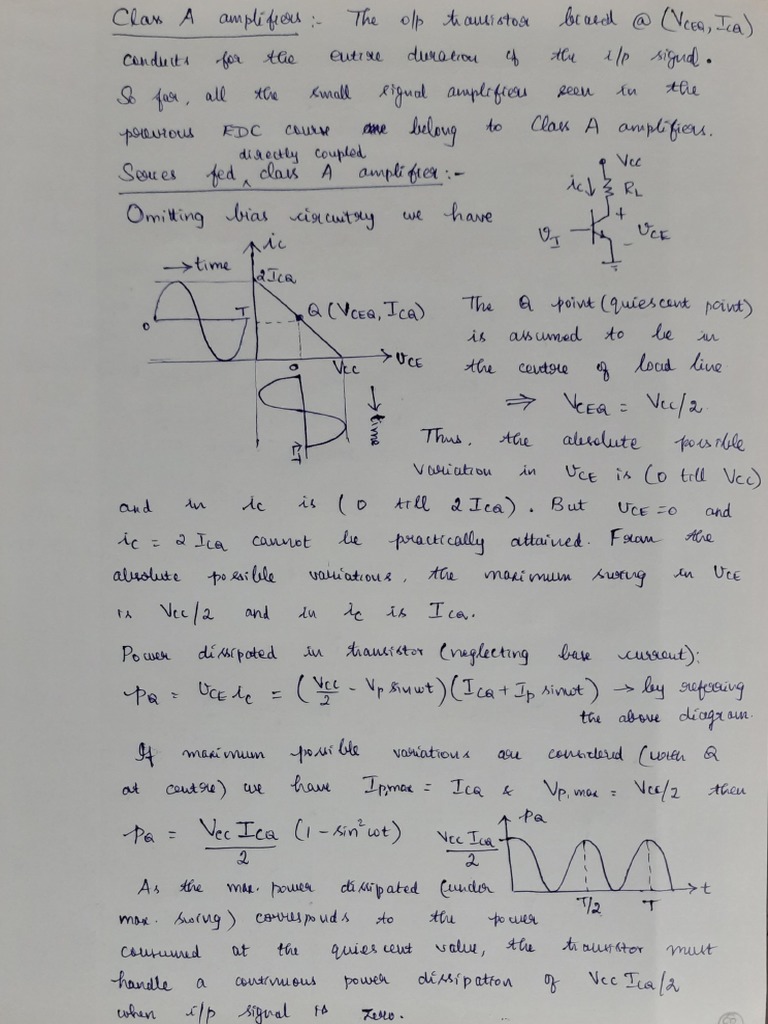 Class A amplifiers :- The o/p transistor biased @ (VCEQ, ICQ)
conducts for the entire duration of the i/p signal.
So far, all the small signal amplifiers seen in the
previous EDC course belong to Class A amplifiers.
directly coupled
Series fed ^ class A amplifier :-
Vcc
ic ↓ RL
+
Omitting bias circuitry we have
VI
- VCE
ic
→ time
2ICQ
T
Q (VCEQ, ICQ)
0
The Q point (quiescent point)
is assumed to be in
VCE
0
Vcc
the centre of load line
⇒ VCEQ = Vcc/2.
time
T
Thus, the absolute possible
variation in VCE is (0 till Vcc)
and in ic is (0 till 2ICQ). But VCE = 0 and
ic = 2 ICQ cannot be practically attained. From the
absolute possible variations, the maximum swing in VCE
is Vcc/2 and in ic is ICQ.
Power dissipated in transistor (neglecting base current):
pQ = VCE ic = (Vcc/2 - Vp sinωt) (ICQ + Ip sinωt) → by referring
the above diagram.
If maximum possible variations are considered (with Q
at centre) we have Ip,max = ICQ & Vp,max = Vcc/2 then
pQ = Vcc ICQ/2 (1 - sin²ωt)
pQ
Vcc ICQ/2
t
T/2
T
As the max. power dissipated (under
max. swing) corresponds to the power
consumed at the quiescent value, the transistor must
handle a continuous power dissipation of Vcc ICQ/2
when i/p signal is zero.